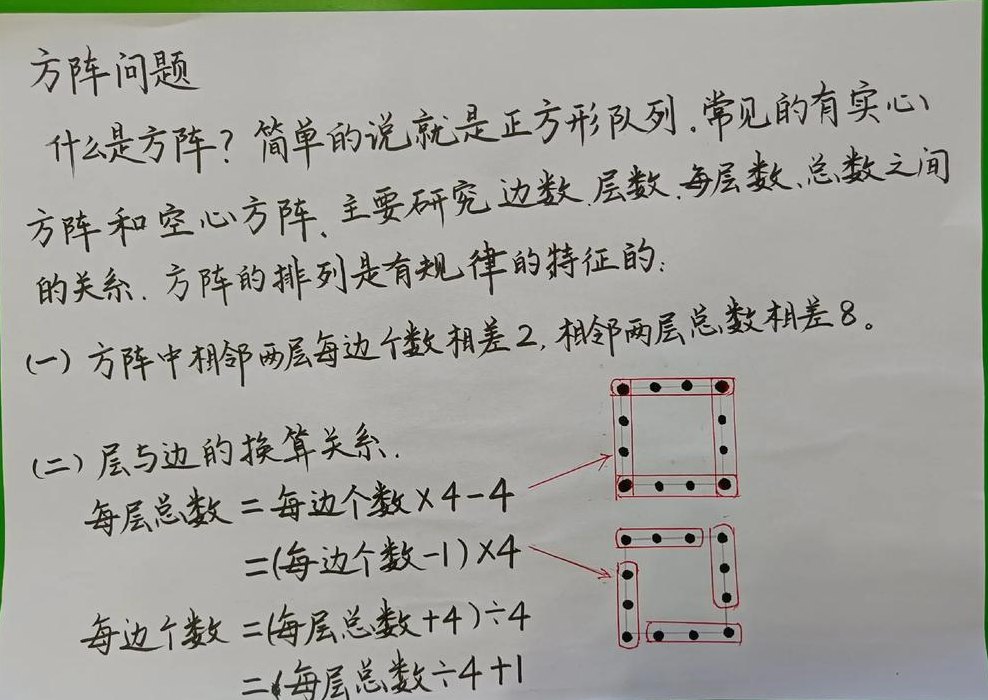 方阵问题
什么是方阵?简单的说就是正方形队列.常见的有实心
方阵和空心方阵、主要研究边数.层数.每层数、总数之间
的关系.方阵的排列是有规律的特征的:
(一)方阵中相邻两层每边个数相差2,相邻两层总数相差8。
(二)层与边的换算关系.
每层总数=每边个数×4-4
=(每边个数-1)×4
每边个数=(每层总数+4)÷4
=(每层总数÷4+1